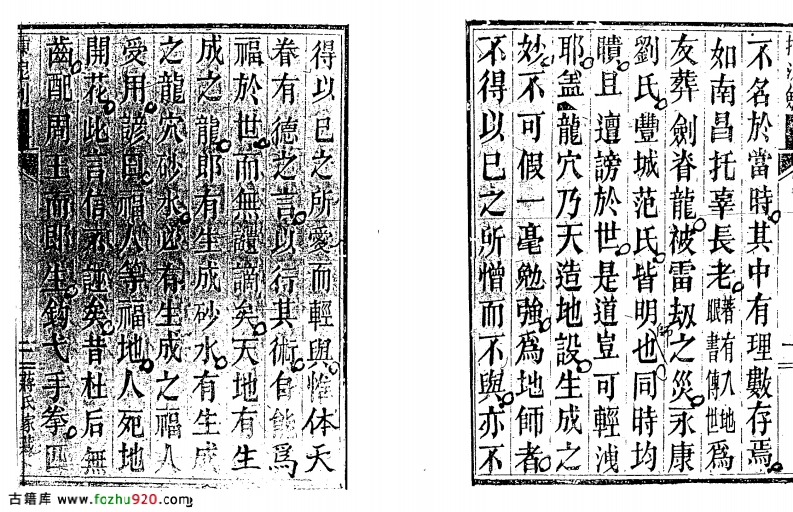 不名於當時其中有理數存焉
如南昌托辜長老著有入地眼書傳世爲
友葬劍脊龍被雷刼之災永康
劉氏豐城范氏皆明也同時均
瞶且遭謗於世是道豈可輕洩
耶盖龍穴乃天造地設生成之
妙不可假一毫勉強爲地師者
不得以已之所憎而不與亦不
得以已之所愛而輕與惟体天
眷有德之言以行其術自能爲
福於世而無譴謫矣天地有生
成之龍即有生成砂水有生成
之龍穴砂水必有生成之福人
受用諺曰福人等福地人死地
開花此言信不誣矣昔杜后無
齒配周王而即生鈎弋手拳
二 蔣氏家藏
古籍库 www.fczhu920.com